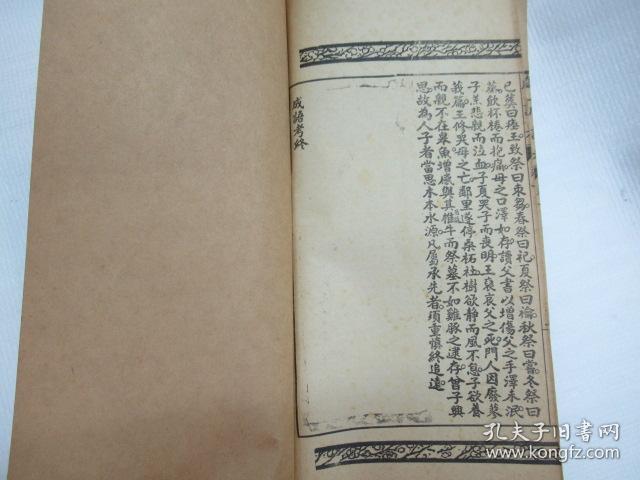 已葬曰瘞玉致祭曰束芻春祭曰祀夏祭曰禴秋祭曰嘗冬祭曰
蒸飲杯棬而抱痛母之口澤如存讀父書以增傷父之手澤未泯
子羔悲親而泣血子夏哭子而喪明王裒哀父之死門人因廢蓼
莪篇王修哭母之亡鄰里遂停桑柘社樹欲靜而風不息子欲養
而親不在臯魚增感與其椎牛而祭墓不如雞豚之逮存曾子興
思故為人子者當思木本水源凡屬承先者須重慎終追遠
成語考終
孔夫子旧书网
kongfz.com